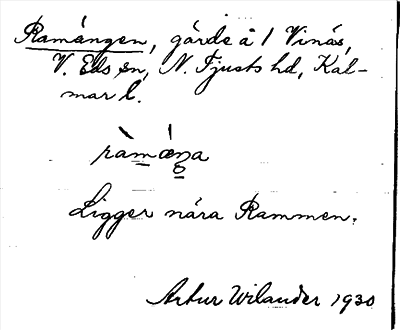 Ramången, gärde å 1 Vinäs,
V. Eds sn, N. Tjusts hd, Kal-
mar l.
Ligger nära Rammen.
Artur Wilander 1930